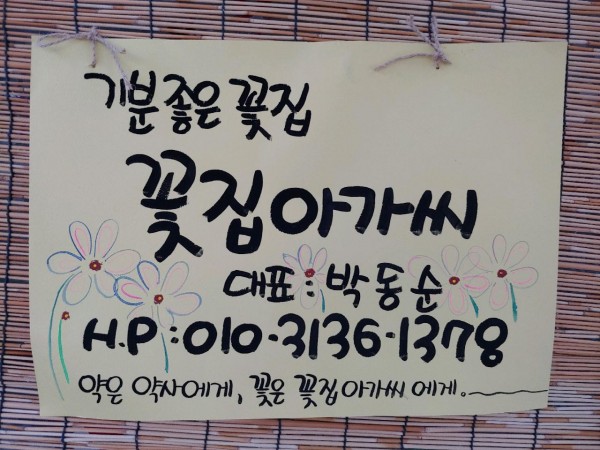 기분좋은 꽃집
꽃집아가씨
대표:박동순
H.P:010-3136-1378
약은 약사에게, 꽃은 꽃집아가씨에게.